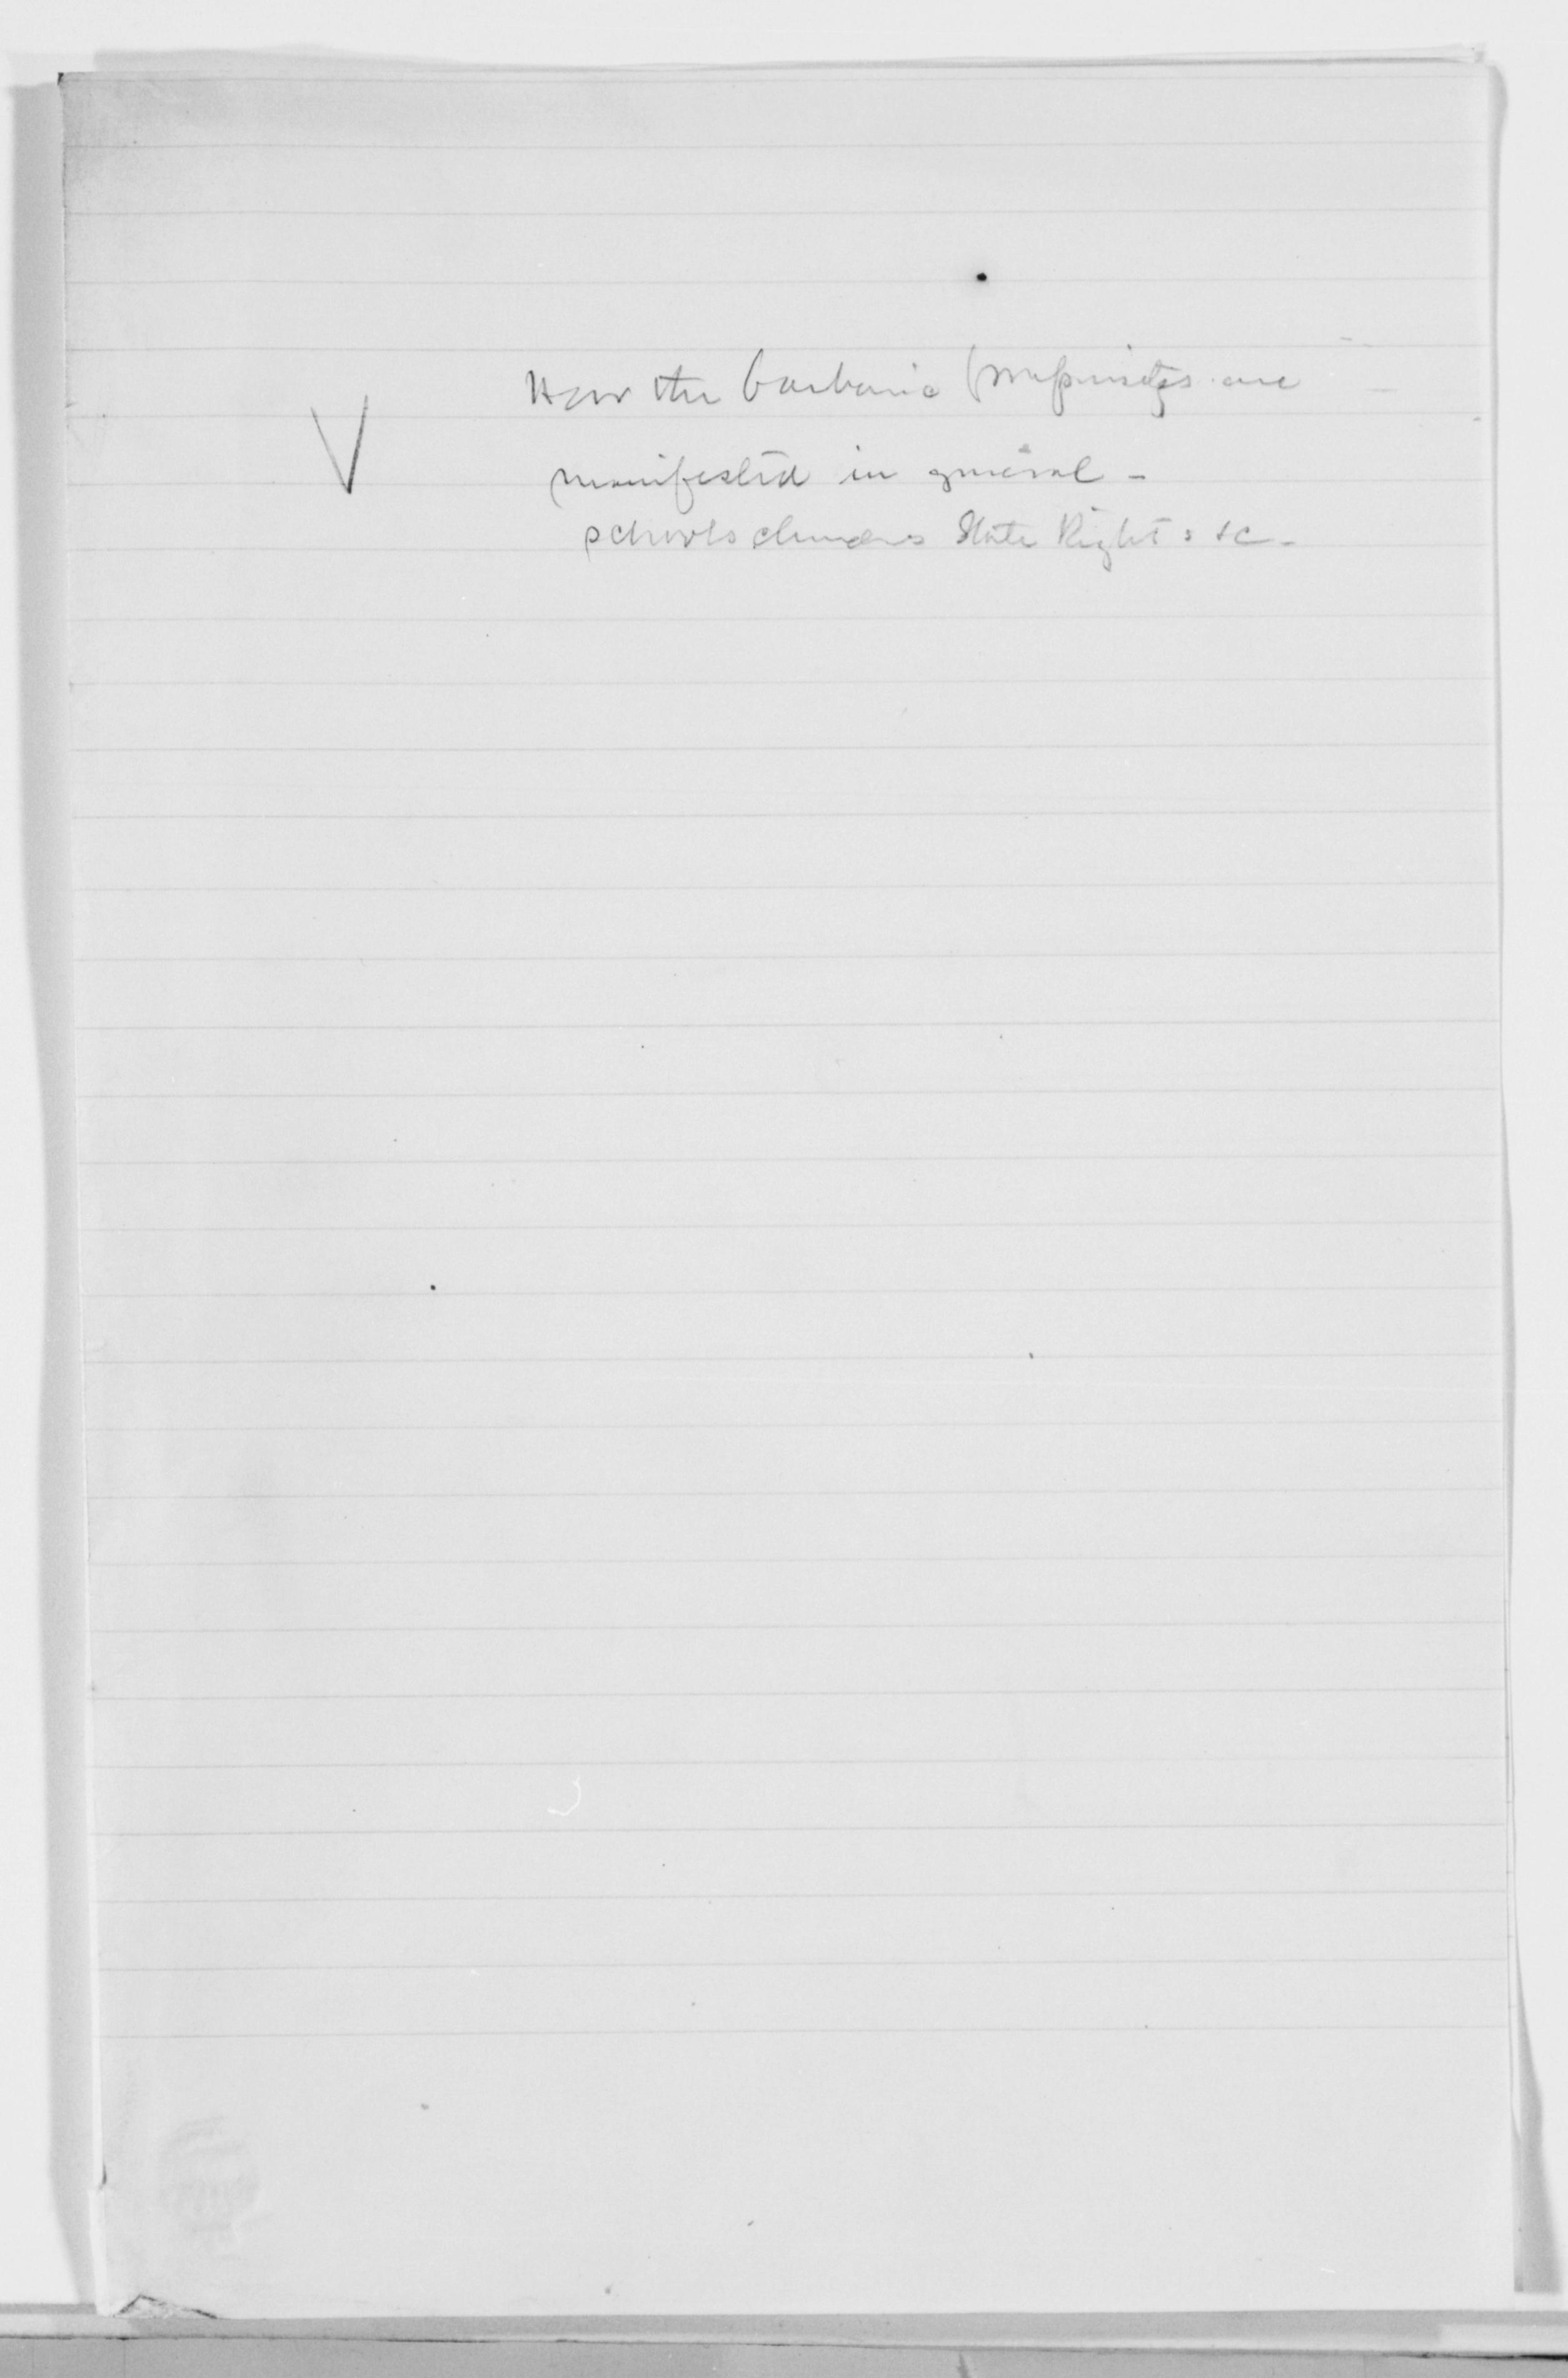 V
How the barbaric are
manifested in general -
schools State Rights &c -